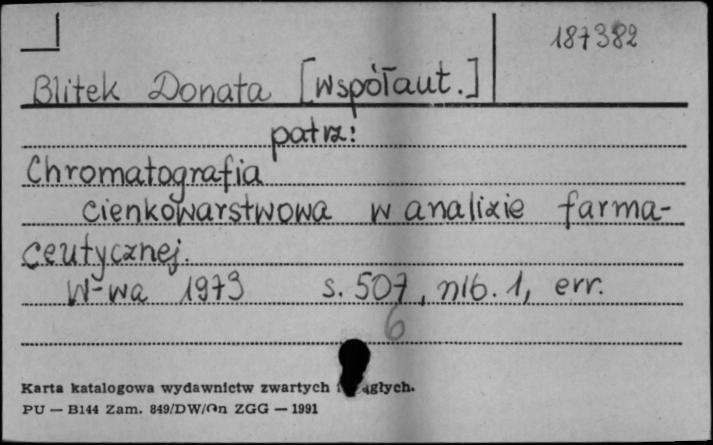 187382
Blitek Donata [współaut.]
patrz:
Chromatografia
cienkowarstwowa w analizie farma-
ceutycznej.
W-wa 1973 s. 507, nlb. 1, err.
6
Karta katalogowa wydawnictw zwartych
PU — B144 Zam. 849/DW/On ZGG — 1991